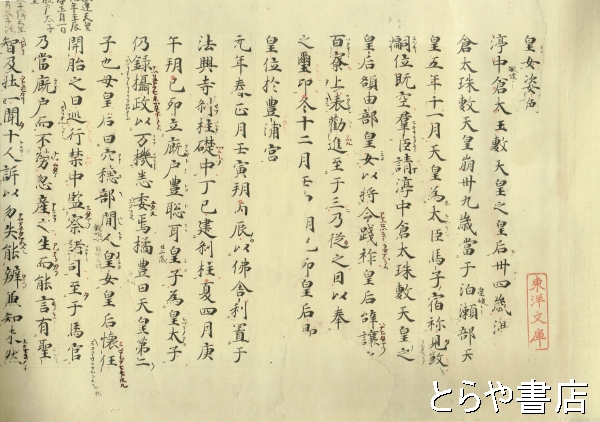 皇女姿色
渟中倉太玉敷天皇之皇后卅四歳渟
倉太珠敷天皇崩卅九歳當于泊瀬部天
皇五年十一月天皇為大臣馬子宿祢見殺
嗣位既空群臣請渟中倉太珠敷天皇之
皇后額田部皇女以将令践祚皇后辞讓
百寮上表勸進至于三乃従之因以奉
之璽印冬十二月壬 月己卯皇后即
皇位於豊浦宮
元年春正月壬寅朔丙辰以佛舎利置于
法興寺刹柱礎中丁巳建刹柱夏四月庚
午朔己卯立廐戸豊聡耳皇子為皇太子
仍録攝政以万機悉委焉橘豊日天皇第二
子也母皇后曰穴穂部間人皇女皇后懐
開胎之日巡行禁中監察諸司至于馬官
乃當廐戸而不労忽産之生而能言有聖
智及壮一聞十人訴以勿失能辨兼知未然
東洋文庫
とらや書店